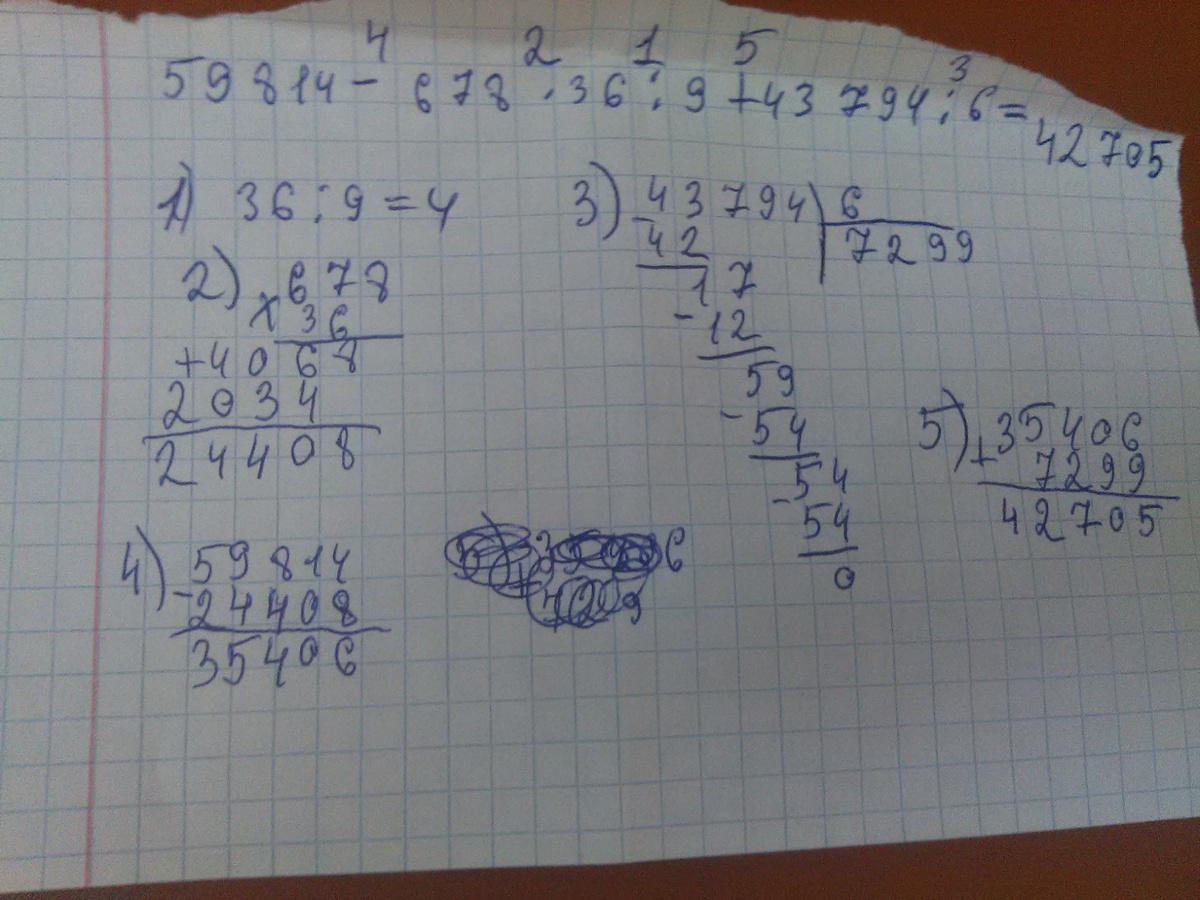 4 2 1 5 3
59814 - 678 · 36 : 9 + 43794 : 6 =
42705
1) 36 : 9 = 4
2) 678
x 36
+4068
2034
24408
3) 43794 | 6
-42 7299
17
-12
59
-54
54
-54
0
4) 59814
-24408
35406
5) 35406
+7299
42705